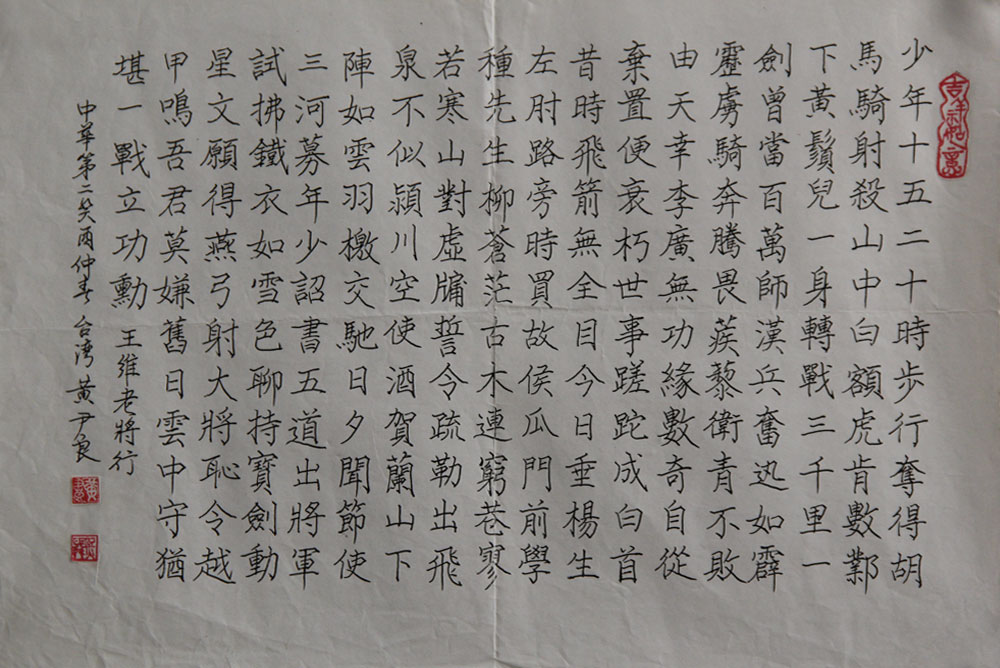 吉祥如意
少年十五二十時步行奪得胡
馬騎射殺山中白額虎肯數鄴
下黃鬚兒一身轉戰三千里一
劍曾當百萬師漢兵奮迅如霹
靂虜騎奔騰畏蒺藜衛青不敗
由天幸李廣無功緣數奇自從
棄置便衰朽世事蹉跎成白首
昔時飛箭無全目今日垂楊生
左肘路旁時買故侯瓜門前學
種先生柳蒼茫古木連窮巷寥
若寒山對虛牖誓令疏勒出飛
泉不似潁川空使酒賀蘭山下
陣如雲羽檄交馳日夕聞節使
三河募年少詔書五道出將軍
試拂鐵衣如雪色聊持寶劍動
星文願得燕弓射大將恥令越
甲鳴吾君莫嫌舊日雲中守猶
堪一戰立功勳 王維老將行
中華第二癸丙仲春 台灣 黃尹良